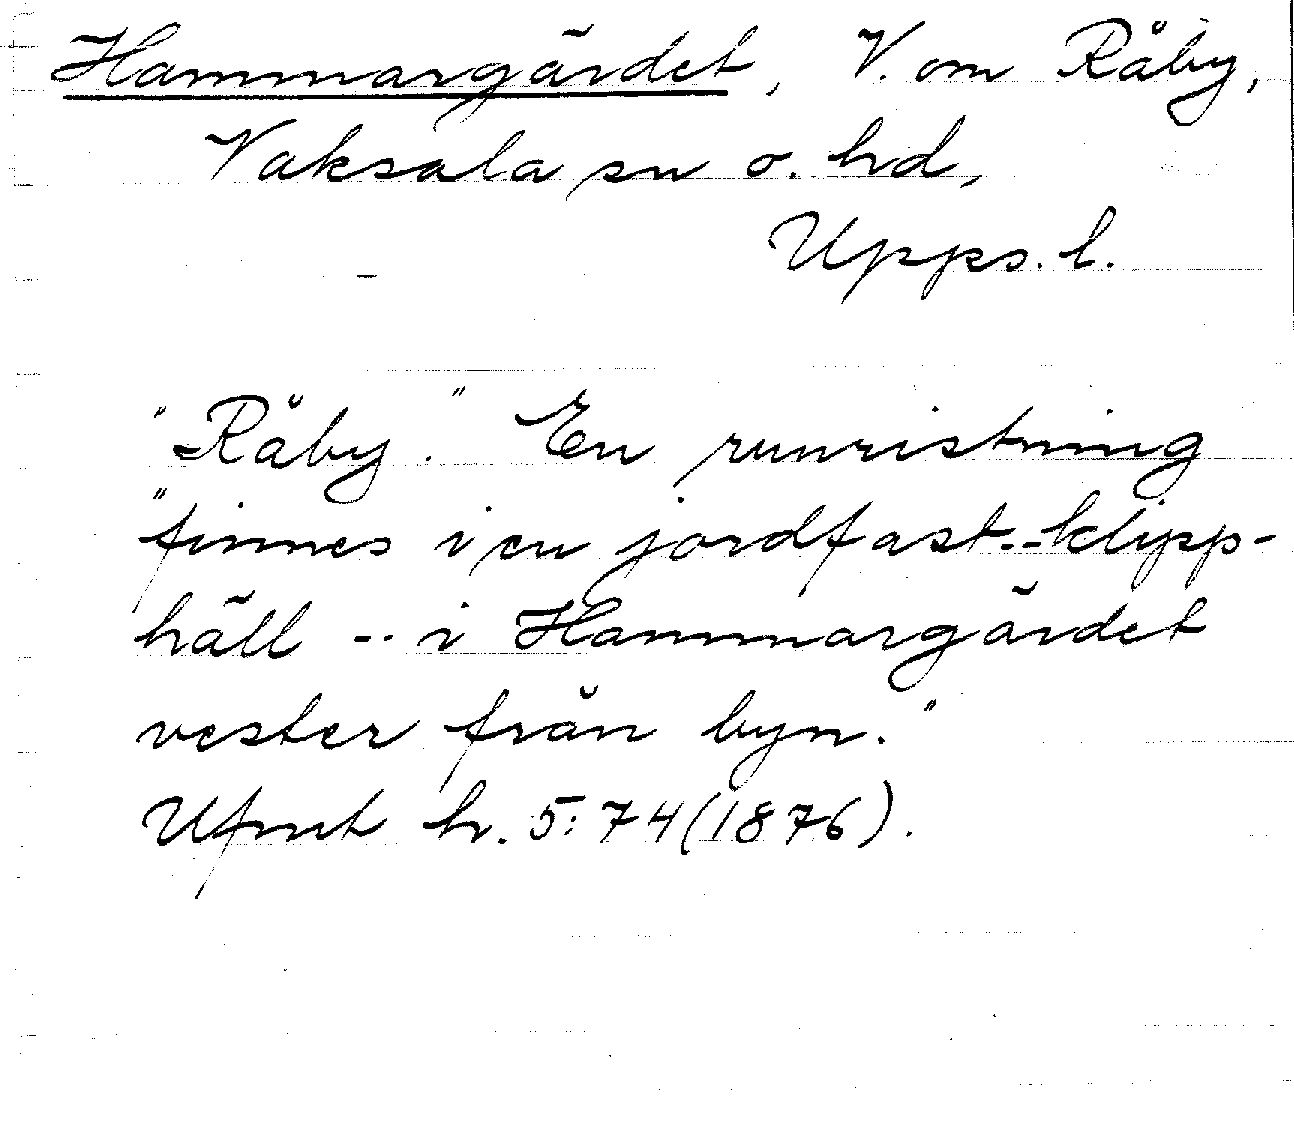 Hammargärdet, V. om Råby,
Vaksala sn o. hd,
Upps. l.
"Råby". En runristning
"finnes i en jordfast -- klipp-
häll -- i Hammargärdet
vester från byn."
Ufmt h. 5:74 (1876).